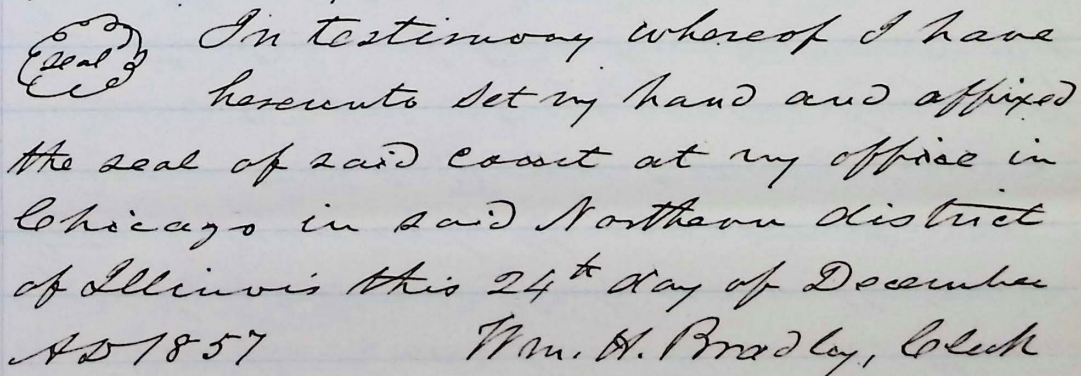 seal In testimony whereof I have
hereunto set my hand and affixed
the seal of said Court at my office in
Chicago in said Northern district
of Illinois this 24th day of December
AD 1857 Wm. H. Bradley, Clerk